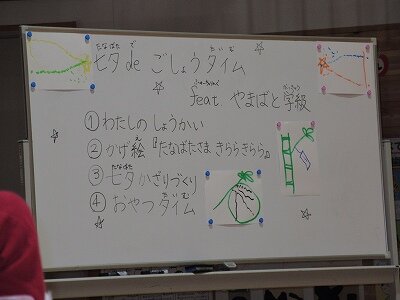 七夕 de ごしょうタイム
feat やまばと学級
①わたしのしょうかい
②かげ絵『たなばたさま きららきらら』
③七夕かざりづくり
④おやつタイム